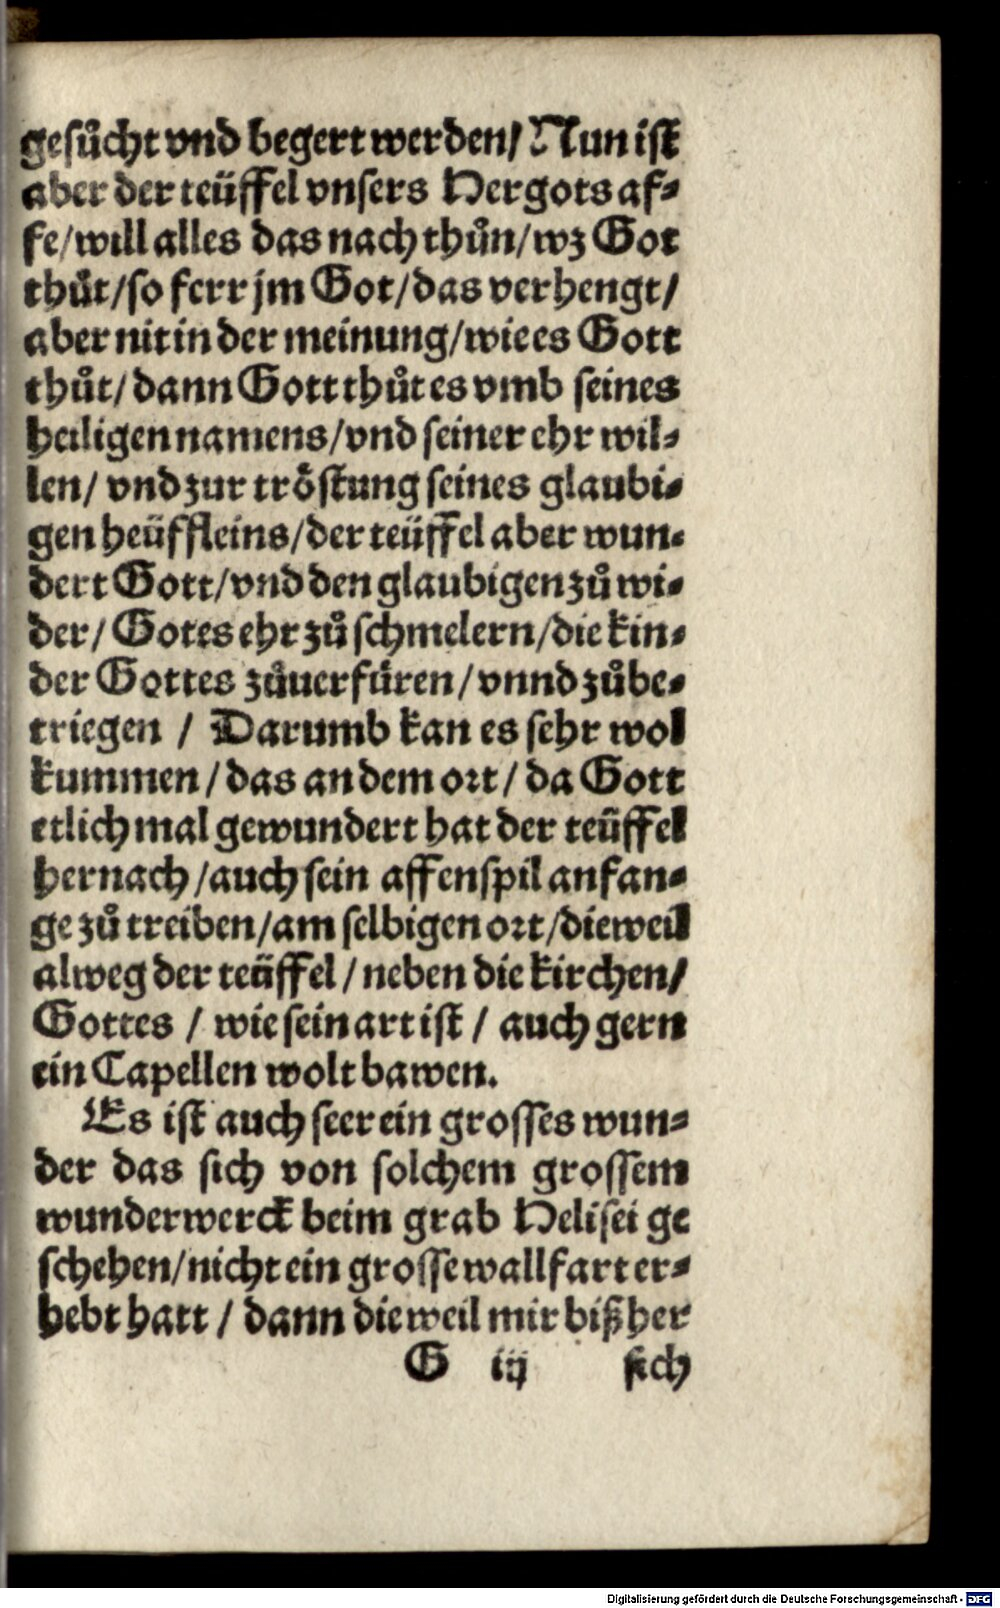 gesůcht vnd begert werden/ Nun ist
aber der teüffel vnsers Hergots af⸗
fe/will alles das nach thůn/wz Got
thůt/so ferr jm Got/das verhengt/
aber nit in der meinung/wie es Gott
thůt/ dann Gott thůt es vmb seines
heiligen namens/vnd seiner ehr wil⸗
len/ vnd zur trőstung seines glaubi⸗
gen heüffleins/der teüffel aber wun⸗
dert Gott/vnd den glaubigen zů wi⸗
der/ Gotes ehr zů schmelern/die kin⸗
der Gottes zůuerfüren/vnnd zůbe⸗
triegen / Darumb kan es sehr wol
kummen/das an dem ort/ da Gott
etlich mal gewundert hat der teüffel
hernach/auch sein affenspil anfan⸗
ge zů treiben/am selbigen ort/dieweil
alweg der teüffel/neben die kirchen/
Gottes / wie sein art ist / auch gern
ein Capellen wolt bawen.
Es ist auch seer ein grosses wun⸗
der das sich von solchem grossem
wunderwerck beim grab Helisei ge
schehen/nicht ein grosse wallfart er⸗
hebt hatt / dann dieweil mir bißher
G iij sich
Digitalisierung gefördert durch die Deutsche Forschungsgemeinschaft - DFG